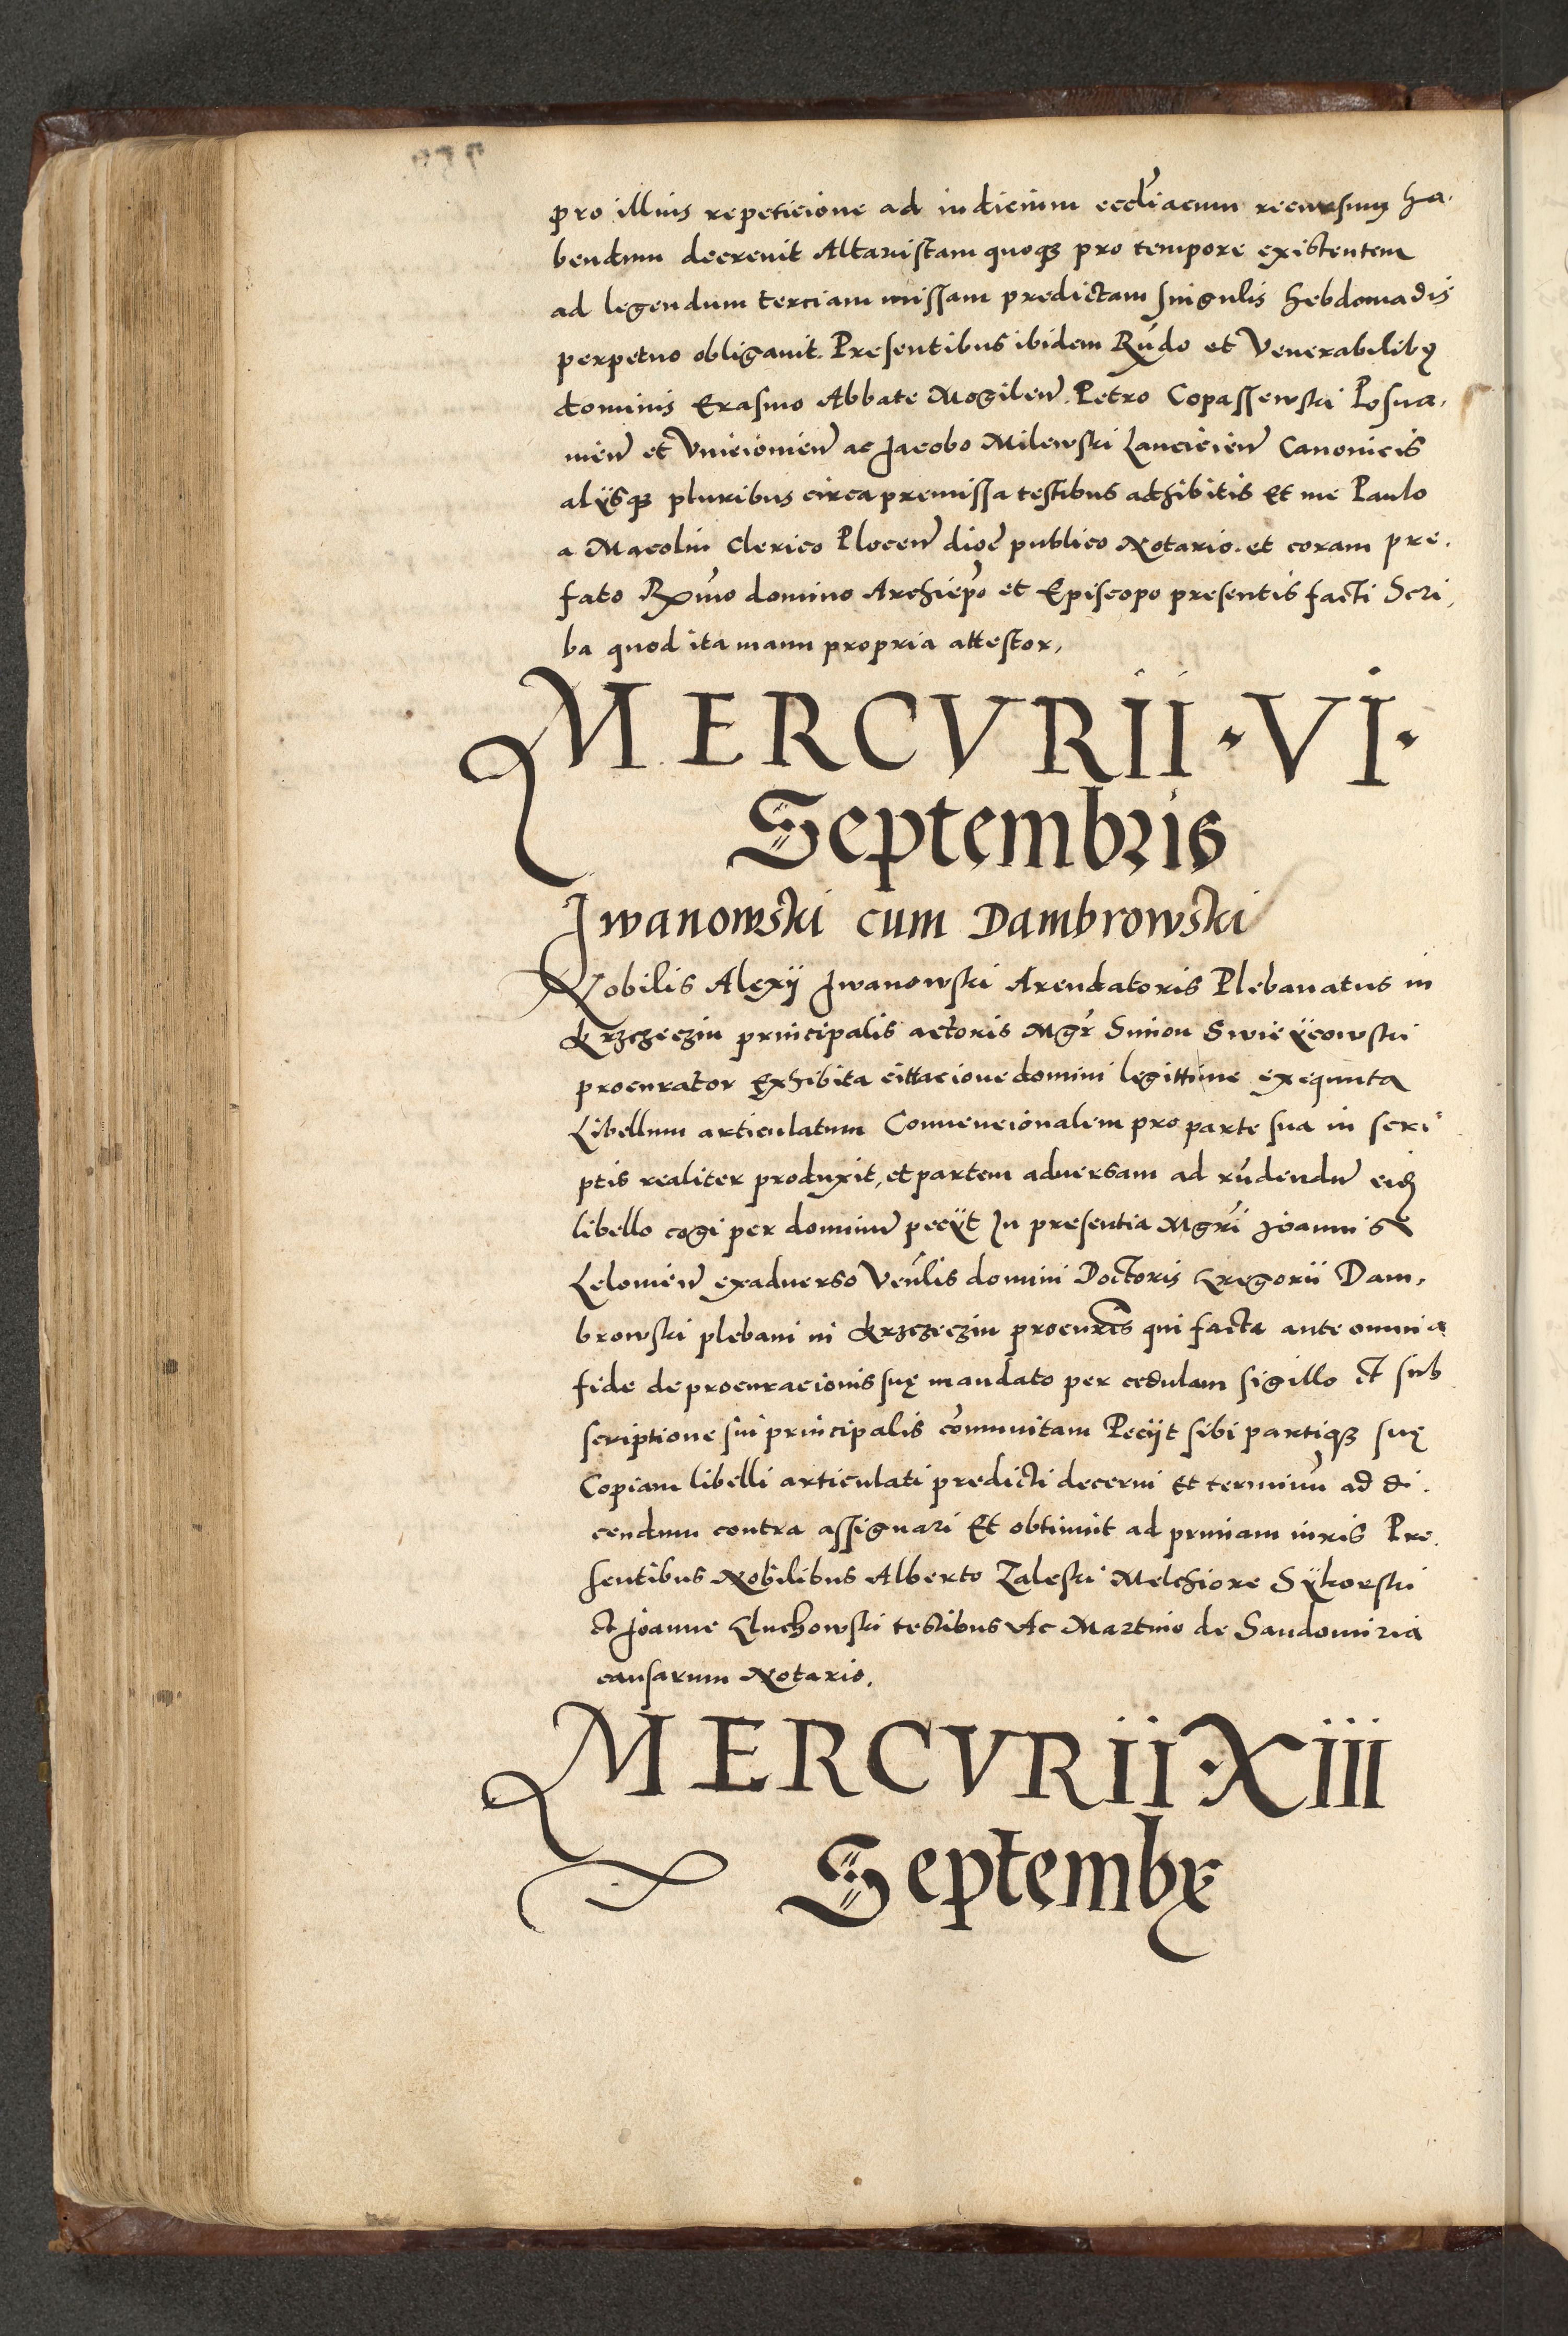 pro illius repeticione ad iudicium eccl'iacum recursum ha-
bendum decrevit Altaristam quoqz pro tempore existentem
ad legendum terciam missam predictam singulis hebdomadis
perpetuo obligavit. Presentibus ibidem Rndo et Venerabilibꝫ
dominis Erasmo Abbate Mogilen. Petro Copassewski Posna-
nien et Vnieiovien ac Jacobo Milewski Lancicien Canonicis
alÿsqz pluribus circa premissa testibus adhibitis Et me Paulo
a Macolin Clerico Plocen dioc publico Notario. et coram pre-
fato Rxmo domino Archiepo et Episcopo presentis facti Scri-
ba quod ita manu propria attestor,
MERCVRII · VI ·
Septembris
Jwanowski cum Dambrowski
Nobilis Alexÿ Jwanowski Arendatoris Plebanatus in
Krzczeczin principalis actoris Mgr Simon Swieÿcowski
procurator Exhibita cittacione domini legittime exequuta
Libellum articulatum Convencionalem pro parte sua in scri-
ptis realiter produxit, et partem adversam ad rndendu eidꝫ
libello cogi per dominu peciit Jn presentia Mgri Joannis
Lelovien exadverso Venlis domini Doctoris Gregorii Dam-
browski plebani in Krzczeczin procuris qui facta ante omnia
fide de procuracionis suę mandato per cedulam sigillo et sub
scriptione sui principalis comunitam Peciit sibi partiqz suę
Copiam libelli articulati predicti decerni Et terminu ad di-
cendum contra assignari Et obtinuit ad primam iuris Pre-
sentibus Nobilibus Alberto Zaleski Melchiore Sÿkorski
et Joanne Gluchowski testibus Ac Martino de Sandomiria
causarum Notario.
MERCVRII · XIII
Septembr